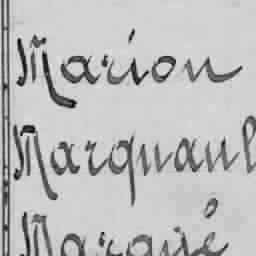 Marion
Marquaul
Marqué